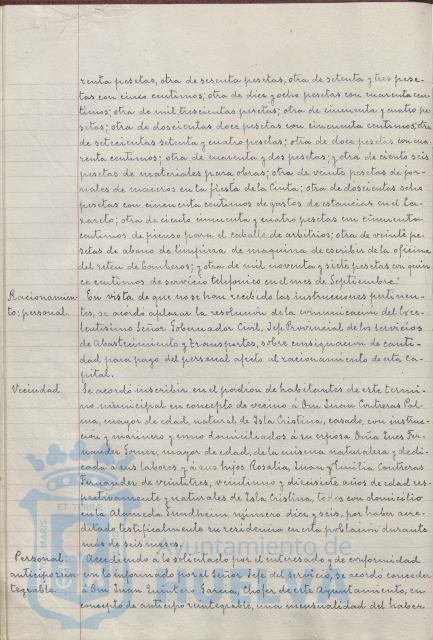 renta pesetas, otra de sesenta pesetas, otra de setenta y tres pese-
tas con cinco centimos; otra de diez y ocho pesetas con cuarenta cen-
timos; otra de mil trescientas pesetas; otra de cincuenta y cuatro pe-
setas; otra de doscientas doce pesetas con cincuenta centimos; otra
de setecientas setenta y cuatro pesetas; otra de doce pesetas con cua-
renta centimos; otra de cuarenta y dos pesetas; y otra de ciento seis
pesetas de materiales para obras; otra de veinte pesetas de jor-
nales de maceros en la fiesta de la Cinta; otra de doscientas ocho
pesetas con cincuenta centimos de gastos de estancias en el La-
zareto; otra de ciento cincuenta y cuatro pesetas con cincuenta
centimos de pienso para el caballo de arbitrios; otra de veinte pe-
setas de abono de limpieza de maquina de escribir de la oficina
del reten de bomberos; y otra de mil noventa y siete pesetas con quin-
ce centimos de servicio telefonico en el mes de Septiembre.
Racionamien-
to: personal.
En vista de que no se han recibido las instrucciones pertinen-
tes, se acordó aplazar la resolución de la comunicación del Exce-
lentisimo Señor Gobernador Civil, Jefe Provincial de los Servicios
de Abastecimiento y Transportes, sobre consignación de canti-
dad para pago del personal afecto al racionamiento de esta Ca-
pital.
Vecindad
Se acordó inscribir en el padrón de habitantes de este térmi-
no municipal en concepto de vecino á Don Juan Contreras Pal-
ma, mayor de edad, natural de Isla Cristina, casado, con instruc-
ción y marinero y como domiciliados á su esposa Doña Ines Fer-
nandez Gomez, mayor de edad, de la misma naturaleza y dedi-
cada á sus labores y á sus hijos Rosalia, Juan y Emilia Contreras
Fernandez de veintitres, veintiuno y diecisiete años de edad res-
pectivamente y naturales de Isla Cristina, todos con domicilio
en la Alameda Sundheim número diez y seis, por haber acre-
ditado testificalmente su residencia en esta población durante
mas de seis meses.
Personal:
anticipo rein-
tegrable.
Accediendo a lo solicitado por el interesado y de conformidad
con lo informado por el Señor Jefe del servicio, se acordó conceder
a Don Juan Quintero Garcia, Chofer de este Ayuntamiento, en
concepto de anticipo reintegrable, una mensualidad del haber
Ayuntamiento de